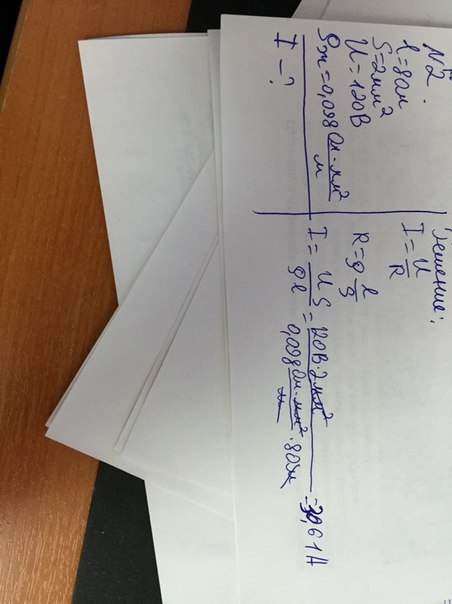 N2.
l=80м
S=2мм²
U=120В
ρж=0,098 Ом·мм²/м
I - ?
Решение:
I = U/R
R=ρ l/S
I = US/ρl = 120В·2мм²/0,098 Ом·мм²/м ·80м = 30,61А